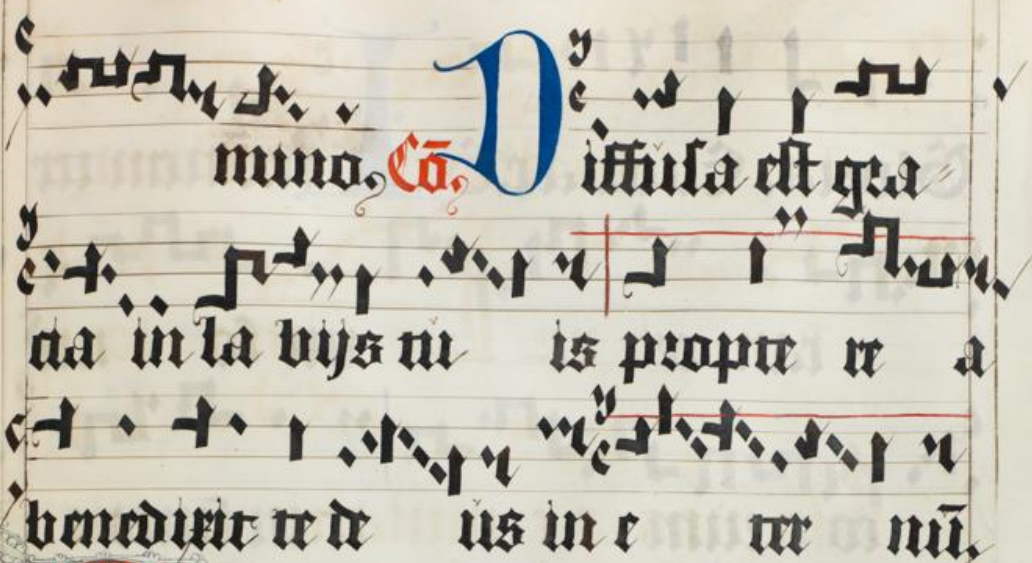 mino. Cō. Diffusa est gra
cia in la bijs tu is propte re a
benedixit te de us in e ter nū.